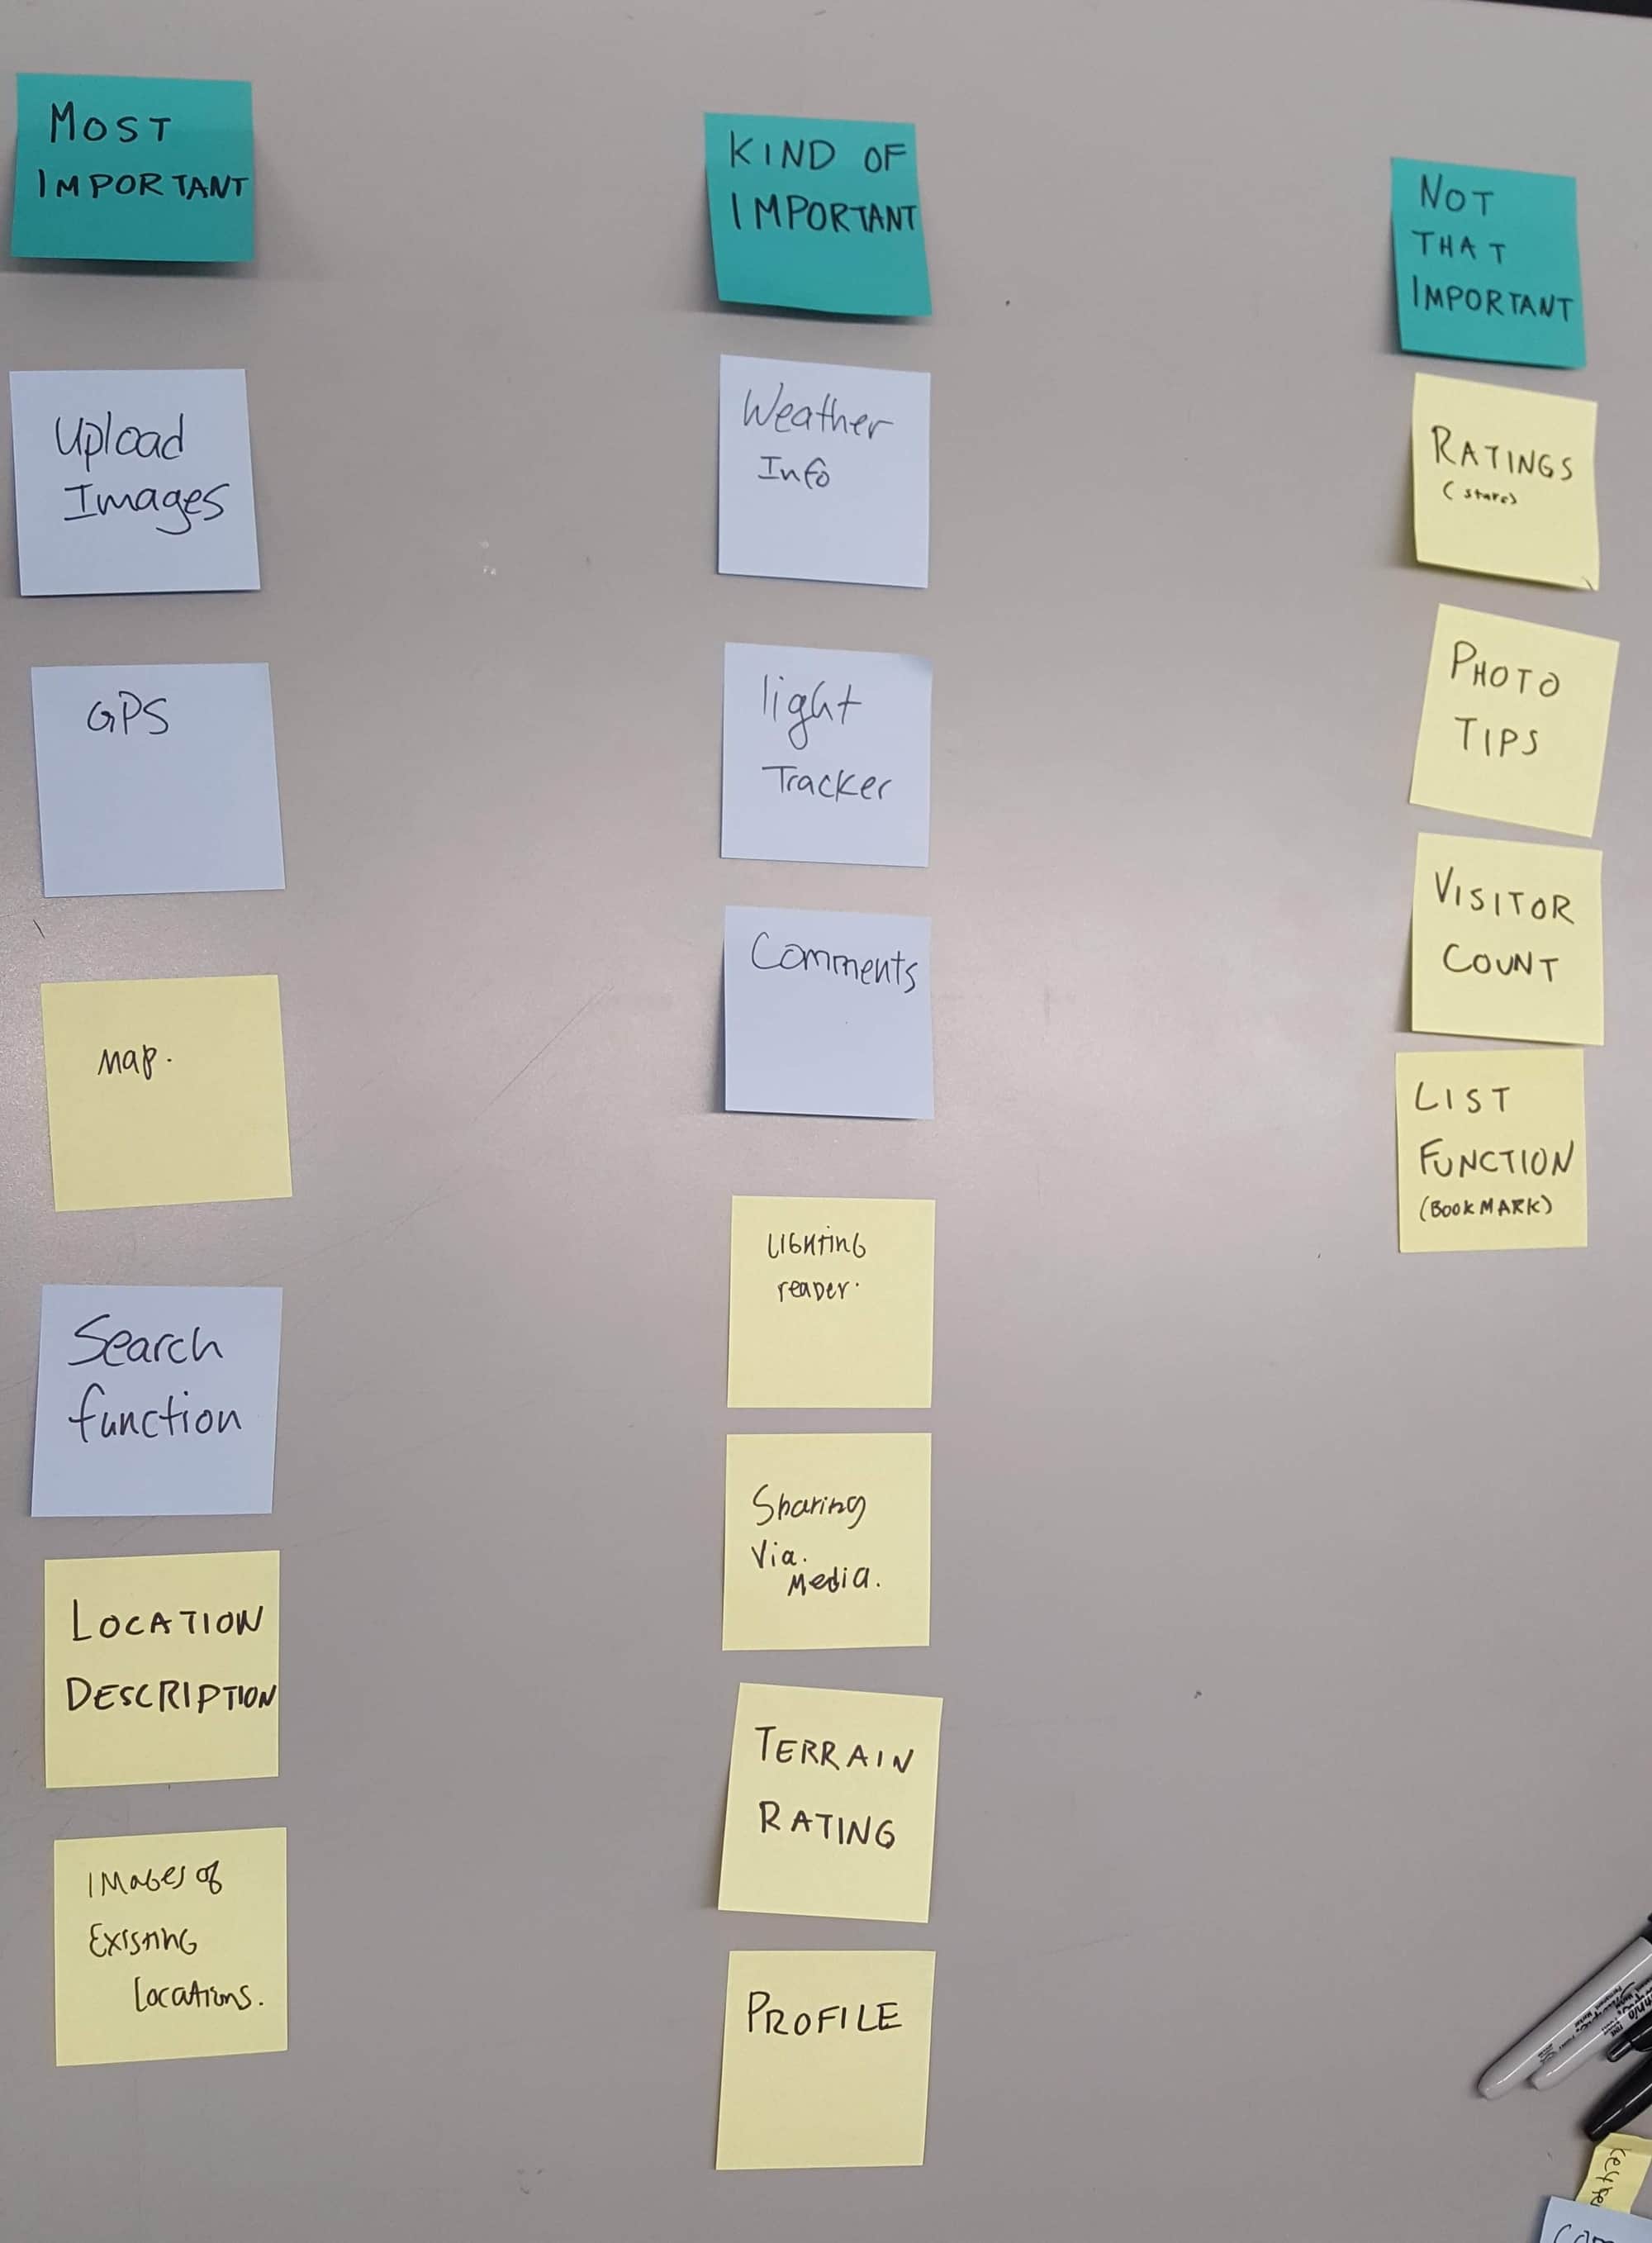 MOST
IMPORTANT
Upload
Images
GPS
Map.
Search
function
LOCATION
DESCRIPTION
IMAGES of
EXISTING
Locations.
KIND OF
IMPORTANT
Weather
Info
light
Tracker
Comments
LIGHTING
reader.
Sharing
Via.
Media.
TERRAIN
RATING
PROFILE
NOT
THAT
IMPORTANT
RATINGS
(stars)
PHOTO
TIPS
VISITOR
COUNT
LIST
FUNCTION
(BOOKMARK)